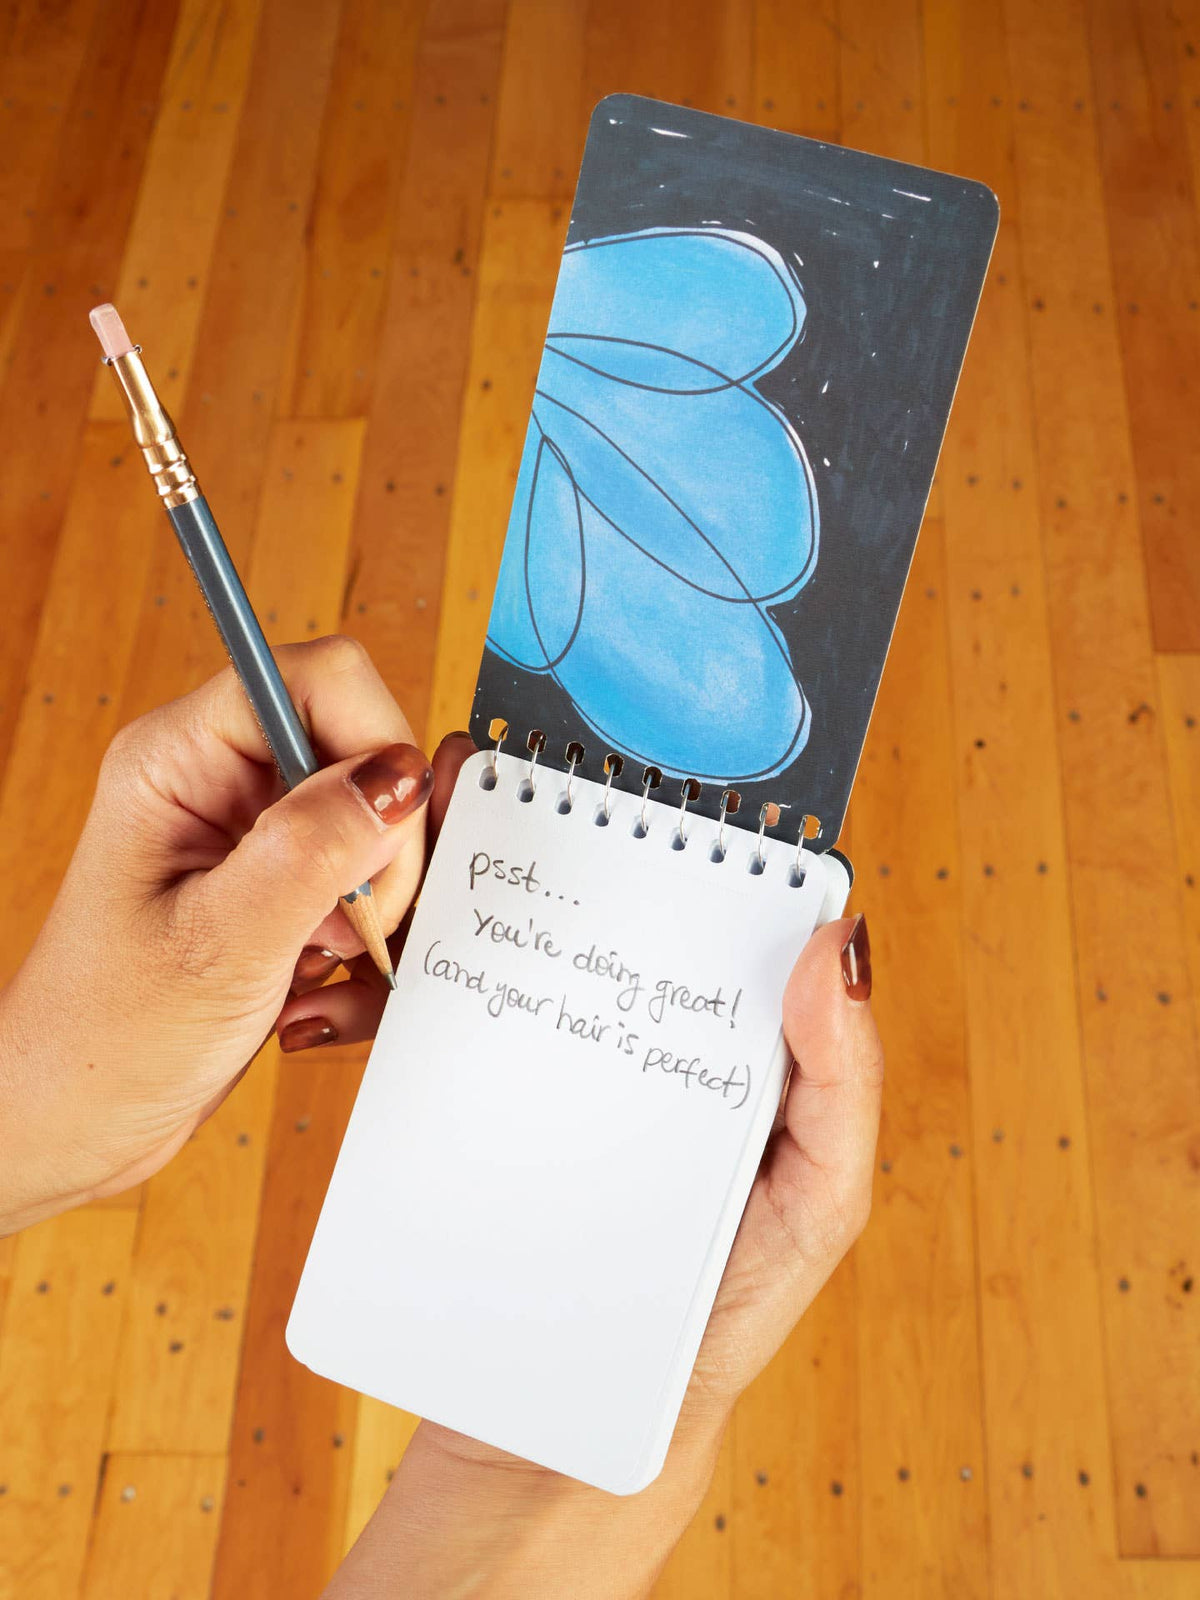 psst...
you're doing great!
(and your hair is perfect)